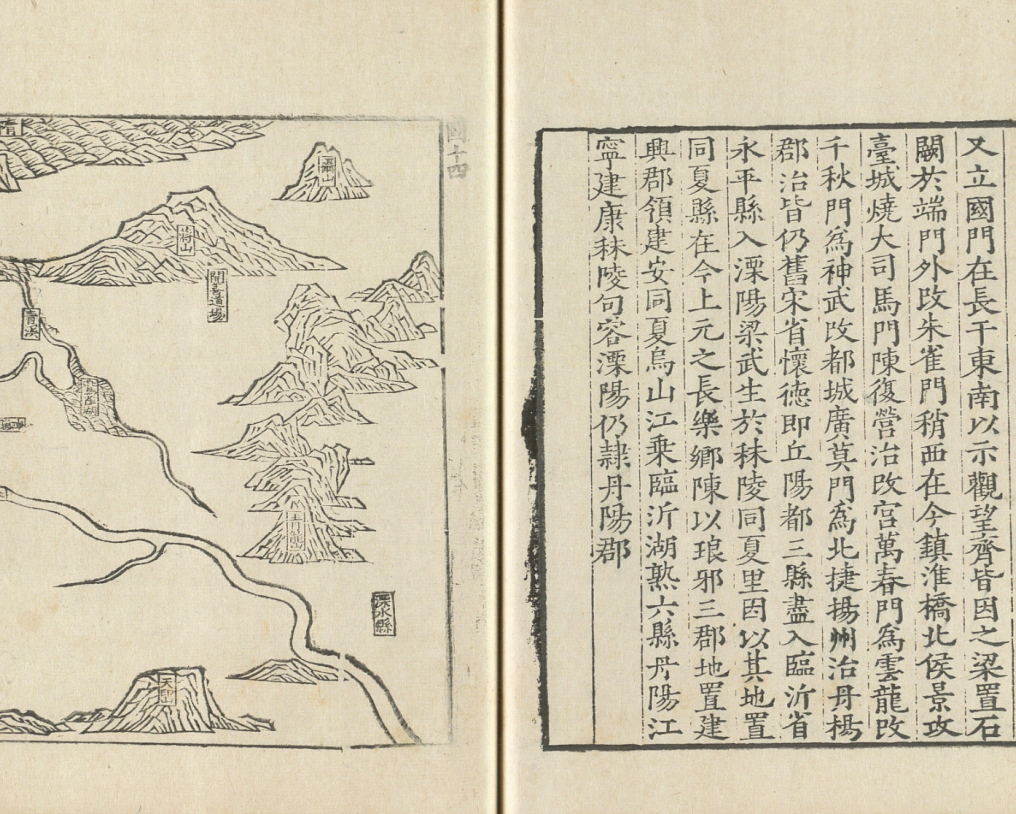 又立國門在長干東南以示觀望齊皆因之梁置石
闕於端門外改朱雀門稍西在今鎮淮橋北侯景攻
臺城燒大司馬門陳復營治改宮萬春門為雲龍改
千秋門為神武改都城廣莫門為北捷揚州治丹楊
郡治皆仍舊宋省懷德即丘陽都三縣盡入臨沂省
永平縣入溧陽梁武生於秣陵同夏里因以其地置
同夏縣在今上元之長樂鄉陳以琅邪三郡地置建
興郡領建安同夏烏山江乘臨沂湖熟六縣丹陽江
寧建康秣陵句容溧陽仍隸丹陽郡
國十四
蔣山
開善道場
青溪
溧水縣
天印山